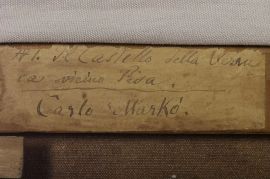 #1. Il Castello della Verru
ca vicino Pisa.
Carlo Markó.